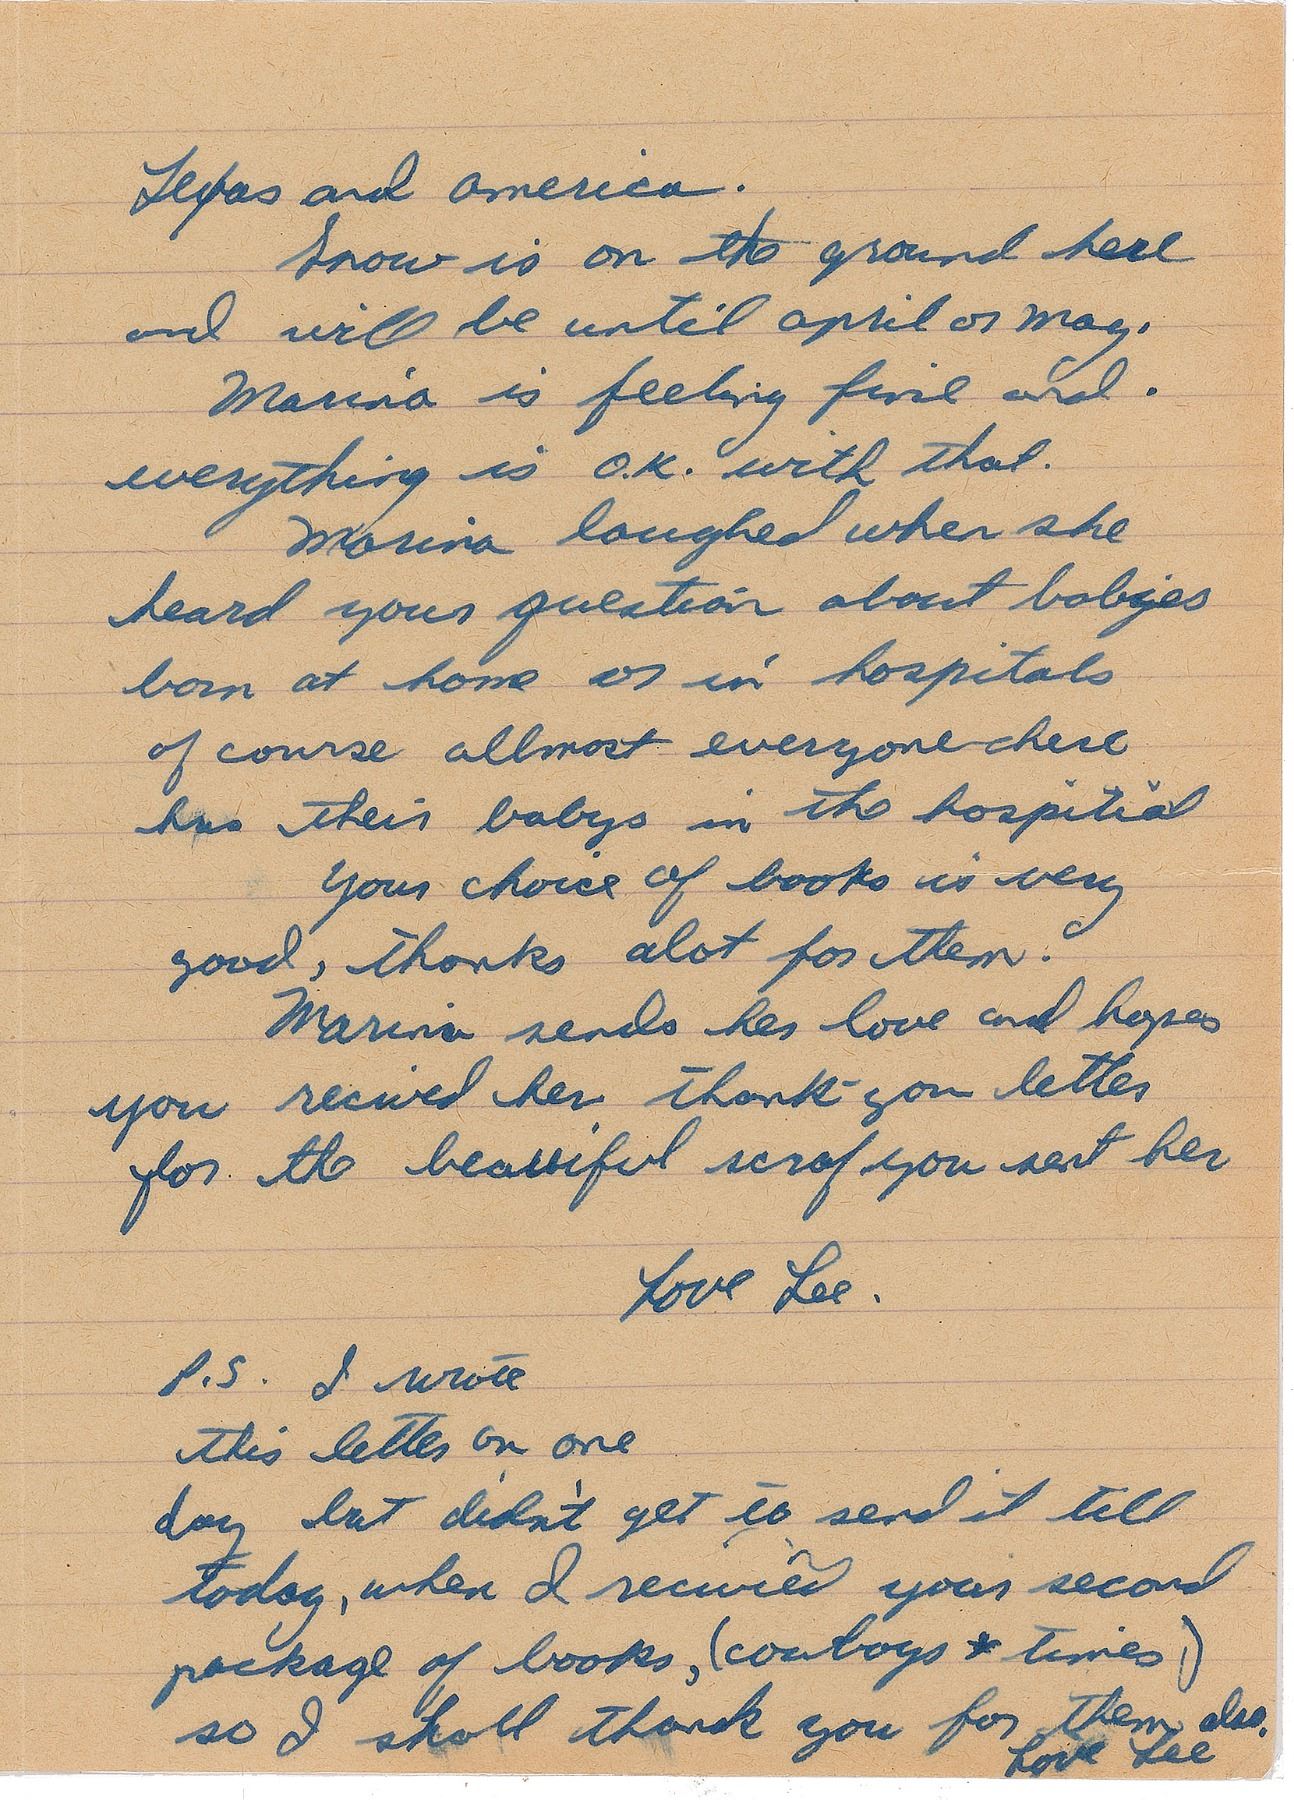 Texas and america.
Snow is on the ground here
and will be until april or may.
Marina is feeling fine and.
everything is O.K. with that.
Marina laughed when she
heard your question about babies
born at home or in hospitals
of course allmost everyone here
has their babys in the hospitial
Your choice of books is very
good, thanks alot for them.
Marina sends her love and hopes
you recived her thank-you letter
for the beautiful scraf you sent her
Love Lee.
P.S. I wrote
this letter on one
day but didn't get to send it till
today, when I recivied your second
package of books, (cowboys * times)
so I shall thank you for them also.
Love Lee